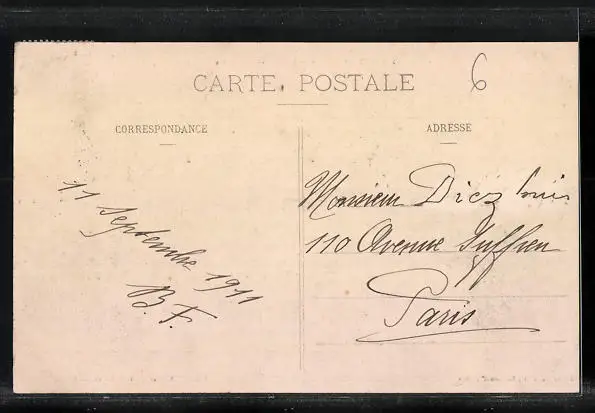 CARTE POSTALE
6
CORRESPONDANCE
11 Septembre 1911
B. F.
ADRESSE
Monsieur Diez
110 Avenue Suffren
Paris